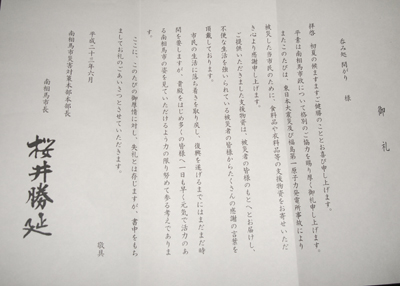 御礼
呑み処 関がり 様
拝啓 初夏の候ますますご健勝のこととお喜び申し上げます。
平素は南相馬市政について格別のご協力を賜り厚く御礼申し上げます。
またこのたびは、東日本大震災及び福島第一原子力発電所事故により
被災した当市民のために、食料品や衣料品等の支援物資をお寄せいただ
き心より感謝申し上げます。
ご提供いただきました支援物資は、被災者の皆様のもとへとお届けし、
不便な生活を強いられている被災者の皆様からたくさんの感謝の言葉を
頂戴しております。
市民の生活に落ち着きを取り戻し、復興を遂げるまでにはまだまだ時
間を要しますが、貴殿をはじめ多くの皆様へ一日も早く元気で活力のあ
る南相馬市の姿を見ていただけるよう力の限り努めて参る考えでありま
す。
ここに、このたびの御厚情に対し、失礼とは存じますが、書中をもち
ましてお礼のごあいさつとさせていただきます。
敬具
平成二十三年六月
南相馬市災害対策本部本部長
南相馬市長
桜井勝延